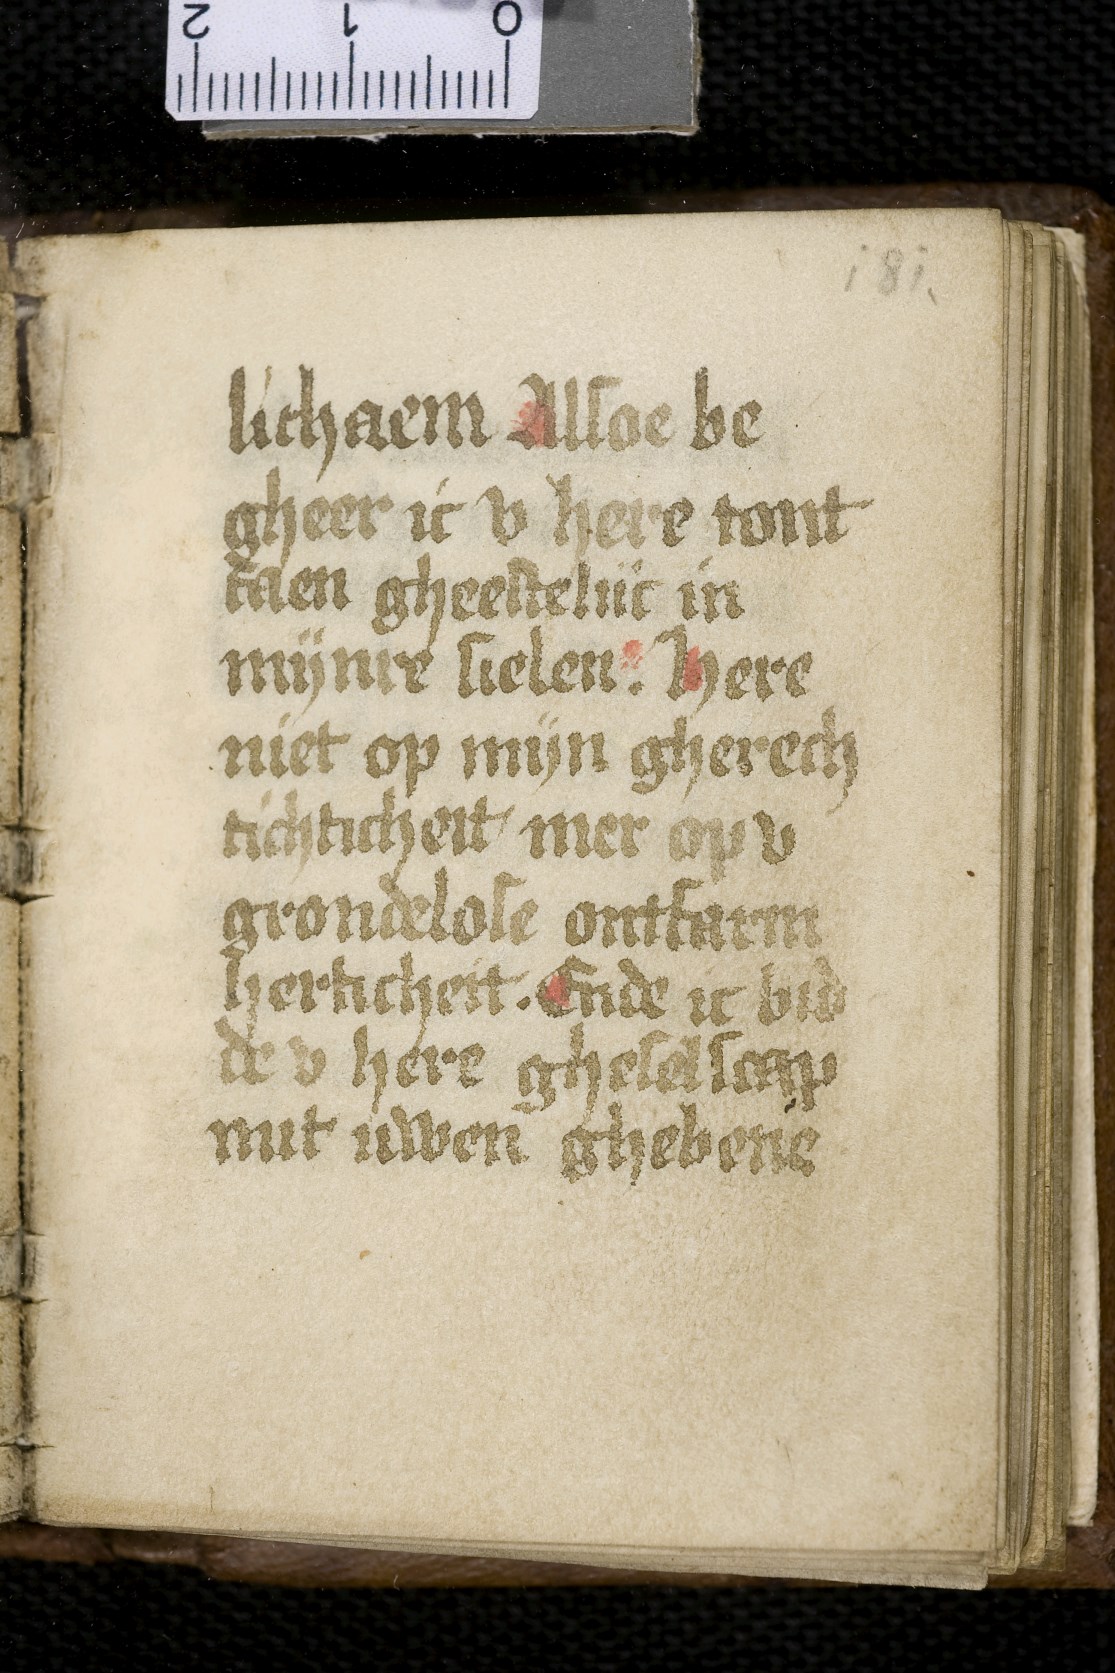 2 1 0
181.
lichaem Alsoe be
gheer ic v here tont
faen gheestelijc in
mijnre sielen: here
niet op mijn gherech
tichticheit mer op v
grondelose ontfarm
herticheit. Ende ic bid
de v here gheselscap
mit uwen ghebene